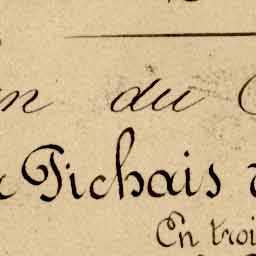 du
Tichais
En troi